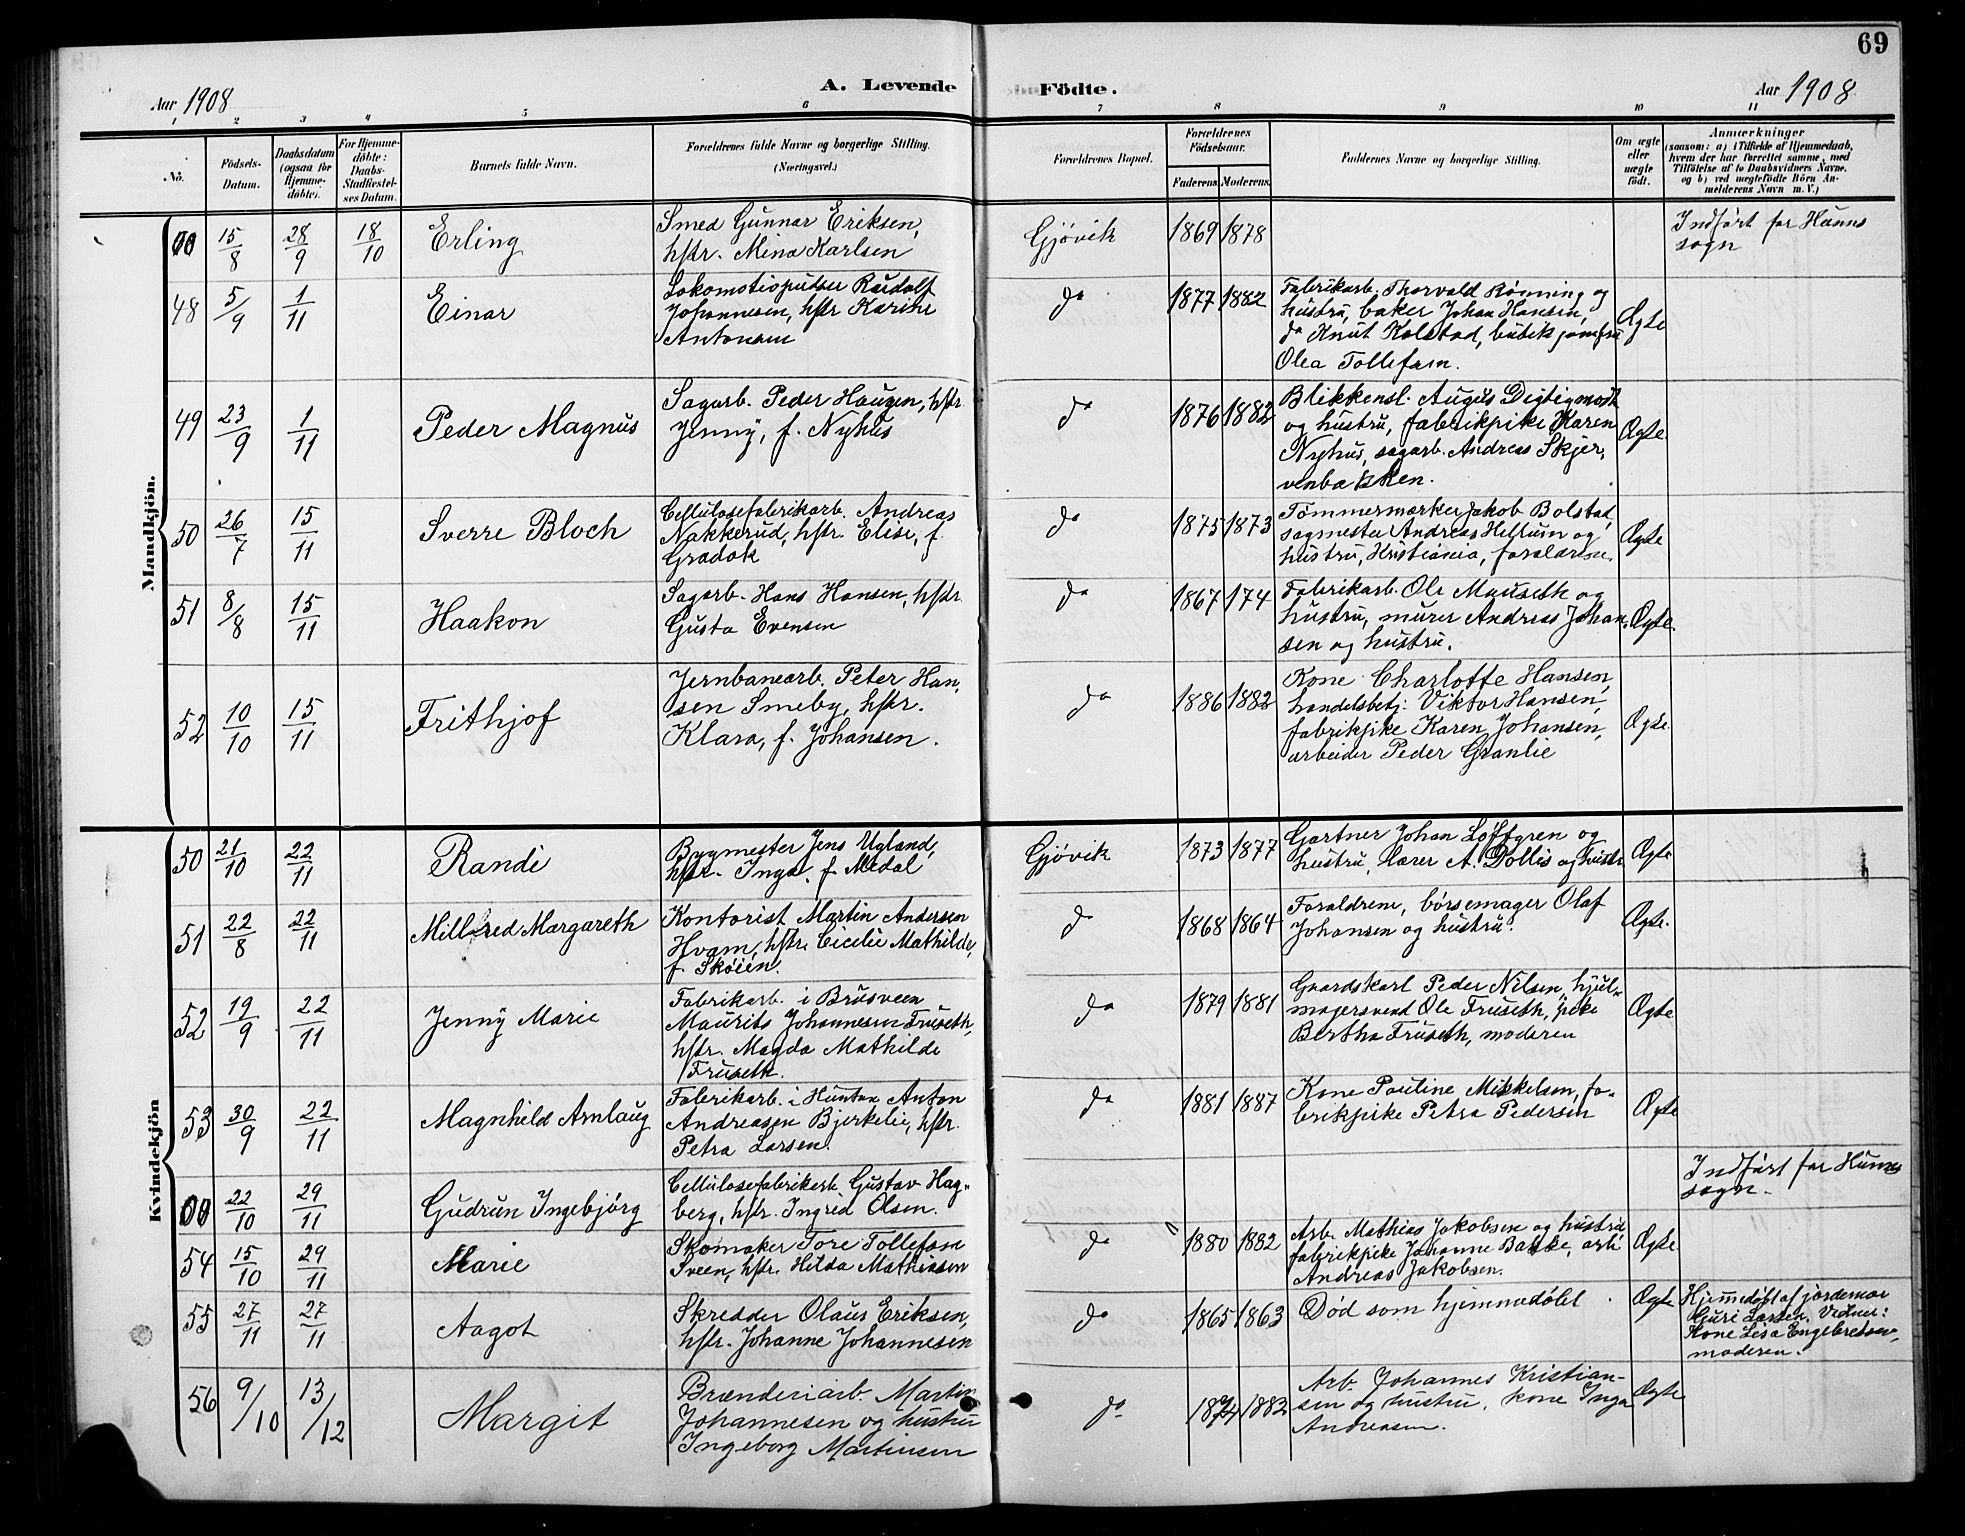 69
A. Levende Födte.
Aar 1908
Aar 1908
1 2 3 4 5 6 7 8 9 10 11
No.
Födsels-
Datum.
Daabsdatum
(ogsaa for
Hjemme-
döbte).
For Hjemme-
döbte:
Daabs-
Stadfæstel-
ses Datum.
Barnets fulde Navn.
Forældrenes fulde Navne og borgerlige Stilling.
(Næringsvei.)
Forældrenes Bopæl.
Forældrenes
Födselsaar.
Faderens. Moderens.
Faddernes Navne og borgerlige Stilling.
Om ægte
eller
uægte
født.
Anmærkninger
(saasom: a) i Tilfælde af Hjemmedaab,
hvem der har forrettet samme, med
Tilföielse af to Daabsvidners Navne,
og b) ved uægtefödte Börn An-
melderens Navn m. V.)
Mandkjön.
15/8 28/9 18/10 Erling
Smed Gunnar Eriksen,
hstr. Mina Karlsen
Gjøvik 1869 1878
Indført for Hunns
sogn
48 5/9 1/11 Einar
Lokomotivpudser Rudolf
Johannesen, hstr Karine
Antonsen
do 1877 1882
Fabrikarb. Thorvald Rønning og
hustru, baker Johan Hansen,
do Knut Kolstad, butikjomfru
Olea Tollefsen.
Ægte
49 23/9 1/11 Peder Magnus
Sagarb. Peder Haugen, hstr
Jenny, f. Nyhus
do 1876 1882
Blikkensl. August Digtigmodt
og hustru, fabrikpike Karen
Nyhus, sagarb. Andreas Skjer,
venbakken.
Ægte.
50 26/7 15/11 Sverre Bloch
Cellulosefabrikarb. Andreas
Nakkerud, hstr. Elise, f.
Gradok
do 1875 1873
Tømmermærker Jakob Bolstad,
sagmester Andreas Hellum og
hustru, Kristiania, forældrene.
Ægte
51 8/8 15/11 Haakon
Sagarb. Hans Hansen, hstr.
Gusta Evensen
do 1867 174
Fabrikarb. Ole Mauseth og
hustru, murer Andreas Johan-
sen og hustru.
Ægte.
52 10/10 15/11 Frithjof
Jernbanearb. Peter Han,
sen Smeby, hstr.
Klara, f. Johansen.
do 1886 1882
Kone Charlotte Hansen,
handelsbetj. Viktor Hansen,
fabrikpike Karen Johansen,
arbeider Peder Granlie
Ægte.
Kvindekjön
50 21/10 22/11 Randi
Bygmester Jens Ugland,
hstr. Inga, f. Medal
Gjøvik 1873 1877
Gartner Johan Løffgren og
hustru, lærer A. Dollis og hustr
Ægte
51 22/8 22/11 Millred Margareth
Kontorist Martin Andersen
Hvam, hstr. Cicilie Mathilde,
f. Skøien.
do 1868 1864
Forældrene, børsemager Olaf
Johansen og hustru.
Ægte.
52 19/9 22/11 Jenny Marie
Fabrikarb. i Brusveen
Maurits Johannesen Fruseth,
hstr. Magda Mathilde
Fruseth.
do 1879 1881
Gaardskarl Peder Nilsen, hjul-
magersvend Ole Fruseth, pike
Bertha Fruseth, moderen
Ægte
53 30/9 22/11 Magnhild Arnlaug
Fabrikarb. i Hunton Anton
Andreasen Bjerkelie, hstr.
Petra Larsen.
do 1881 1887
Kone Pauline Mikkelsen, fa-
brikpike Petra Pedersen
Ægte
22/10 29/11 Gudrun Ingebjørg
Cellulosefabrikarb. Gustav Hag-
berg, hstr. Ingrid Olsen.
Indført for Hunns
sogn.
54 15/10 29/11 Marie
Skomaker Tore Tollefsen
Sveen, hstr. Hilda Mathiesen
do 1880 1882
Arb. Mathias Jakobsen og hustru
fabrikpike Johanne Bakke, arb
Andreas Jakobsen.
Ægte
55 27/11 27/11 Aagot
Skredder Olaus Eriksen,
hstr. Johanne Johannesen
do 1865 1863
Død som hjemmedøbt.
Ægte
Hjemmedøbt af jordemor
Guri Larsen. Vidner:
Kone Lisa Engebretsen,
moderen.
56 9/10 13/12 Margit
Brænderiarb. Martin
Johannesen og hustru
Ingeborg Martinsen
do 1874 1882
Arb. Johannes Kristian-
sen og hustru, kone Inga
Andreasen.
Ægte